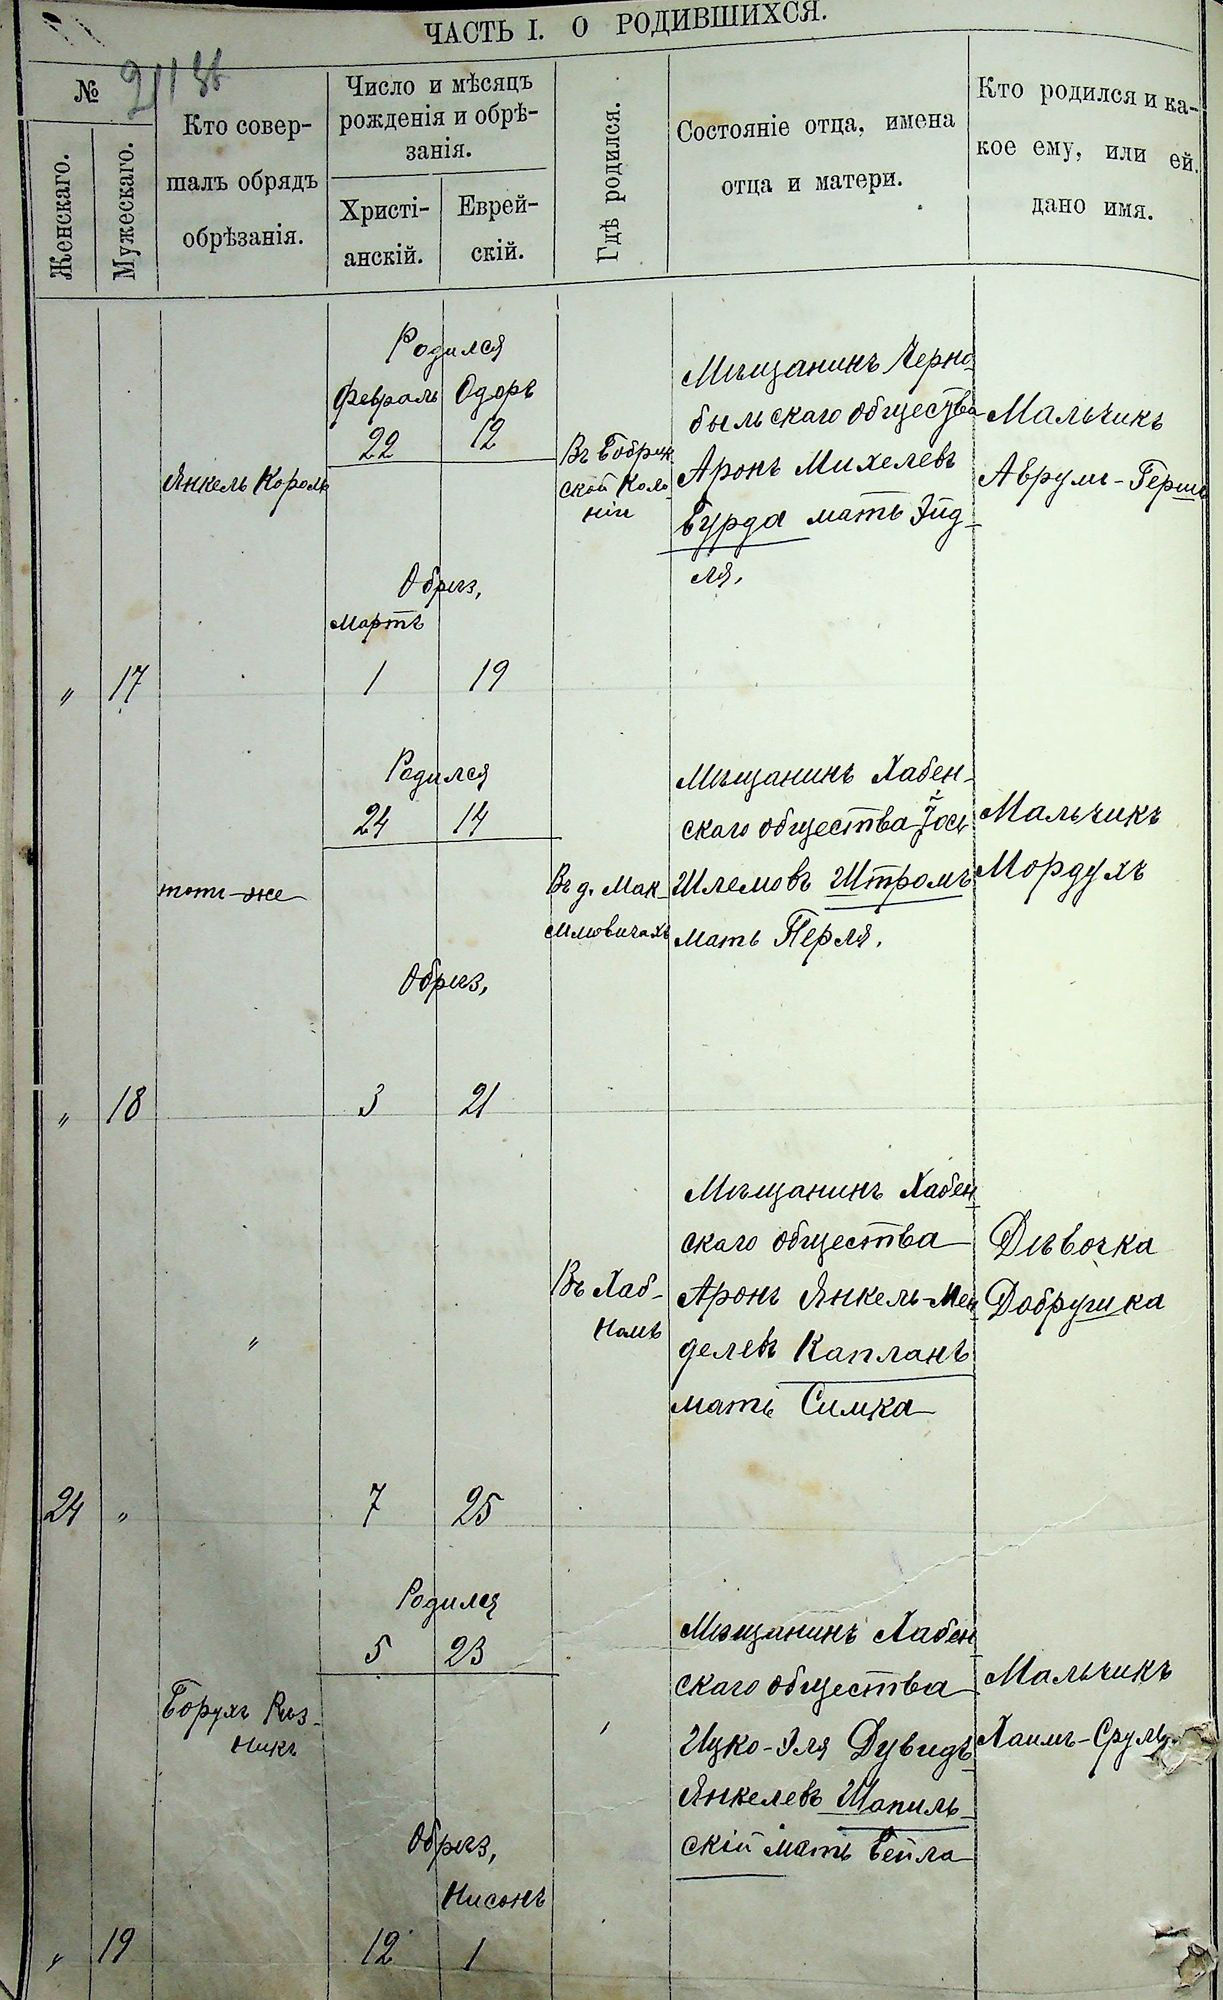 ЧАСТЬ I. О РОДИВШИХСЯ.
№
Женскаго.
Мужескаго.
Кто совер-
шалъ обрядъ
обрѣзанія.
Число и мѣсяцъ
рожденія и обрѣ-
занія.
Христі-
анскій.
Еврей-
скій.
Гдѣ родился.
Состояніе отца, имена
отца и матери.
Кто родился и ка-
кое ему, или ей.
дано имя.
„ 17
Янкель Король
Родился
Февраль Одоръ
22 12
Обрѣз,
Мартъ
1 19
Въ Бобрин
ской Коло
ніи
Мѣщанинъ Черно-
быльскаго общества
Аронъ Михелевъ
Бурда мать Эйд-
ля,
Мальчикъ
Аврумъ-Герш
„ 18
тотъ-же
Родился
24 14
Обрѣз,
3 21
Въ д. Мак-
симовичахъ
Мѣщанинъ Хабен-
скаго общества Іось
Шлемовъ Штромъ
мать Перля.
Мальчикъ
Мордухъ
24 „
„
7 25
Въ Хаб-
номъ
Мѣщанинъ Хабен-
скаго общества
Аронъ Янкель-Мен-
делевъ Капланъ
мать Симка
Дѣвочка
Добрушка
„ 19
Борухъ Рѣз-
никъ
Родился
5 23
Обрѣз,
Нисонъ
12 1
Мѣщанинъ Хабен
скаго общества
Ицко-Эля Дувидъ-
Янкелевъ Шапиль-
скій мать Бейла
Мальчикъ
Хаимъ-Сруль